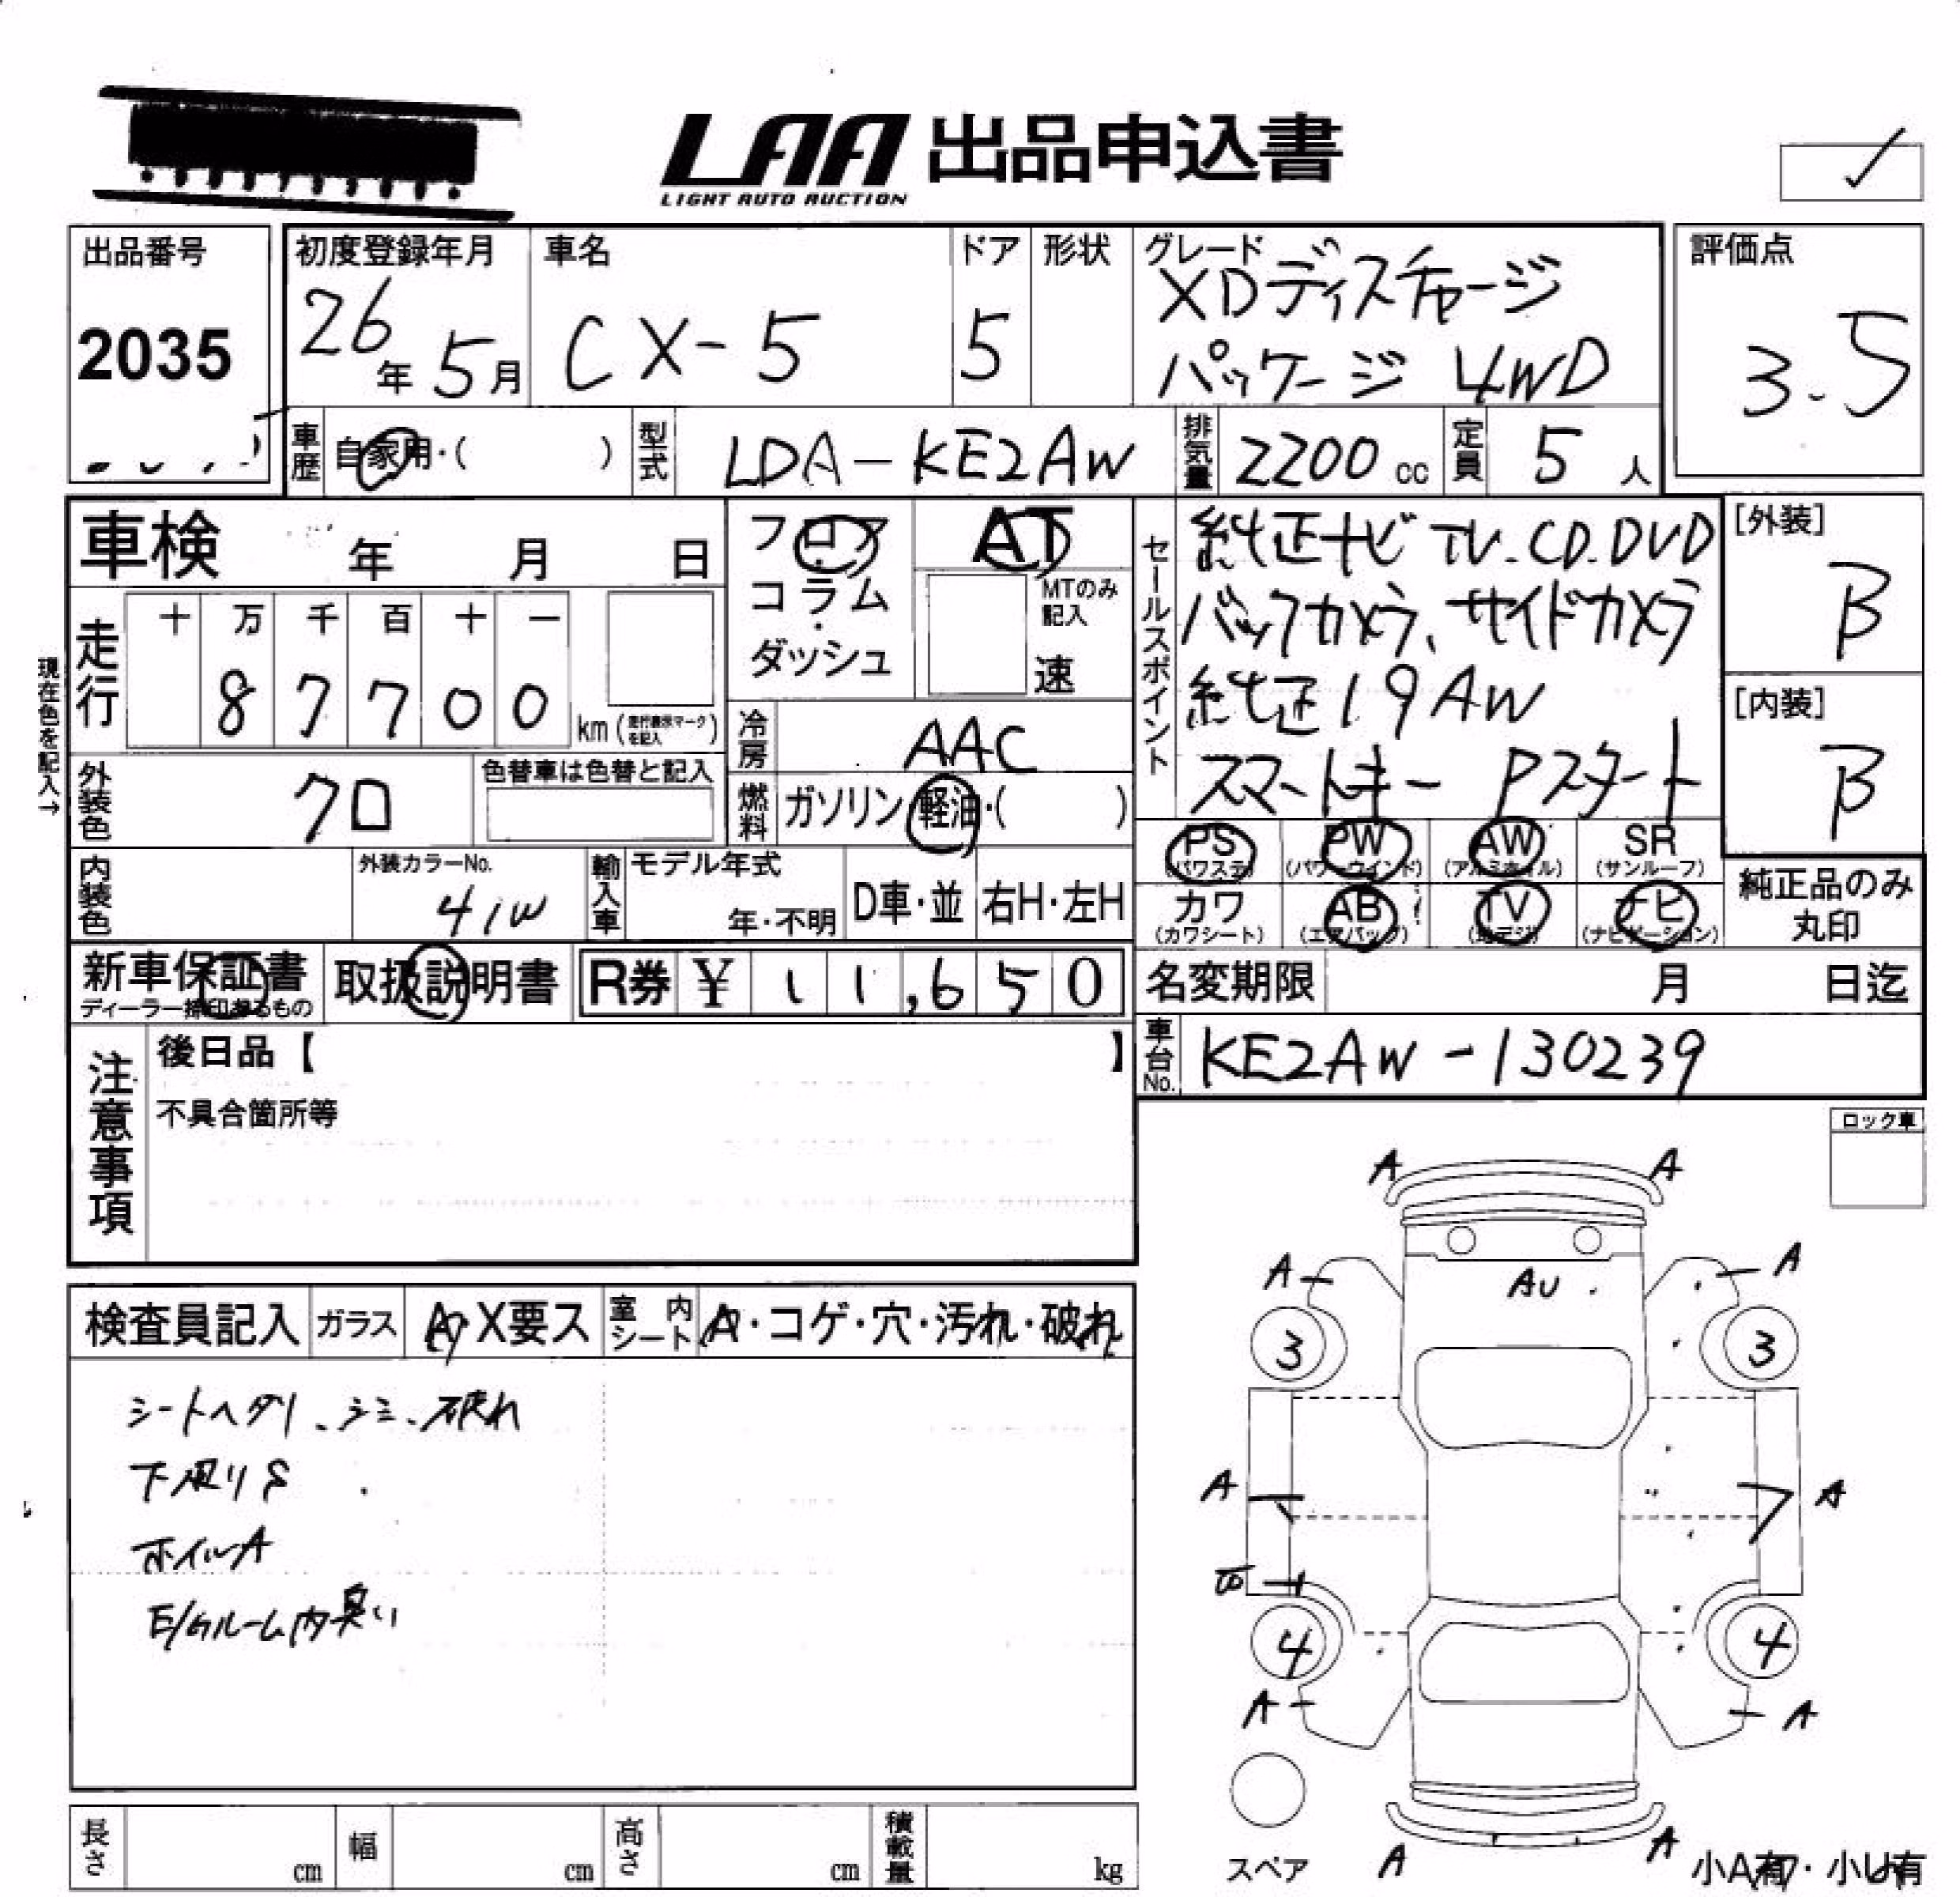 LAA 出品申込書
LIGHT AUTO AUCTION
出品番号
2035
初度登録年月
26年 5月
車名
CX-5
ドア
5
形状
グレード
XDディスチャージ
パッケージ 4WD
評価点
3.5
車歴
自家用・( )
型式
LDA-KE2AW
排気量
2200 cc
定員
5 人
車検 年 月 日
フロア
・
コラム
・
ダッシュ
AT
MTのみ
記入
速
セールスポイント
純正ナビ TV.CD.DVD
バックカメラ、サイドカメラ
純正19AW
スマートキー Pスタート
[外装]
B
[内装]
B
現在色を記入→
走行
十 万 千 百 十 一
8 7 7 0 0
km (走行表示マークを記入)
冷房
AAC
外装色
クロ
色替車は色替と記入
燃料
ガソリン・軽油・( )
PS
(パワステ)
PW
(パワーウインド)
AW
(アルミホイル)
SR
(サンルーフ)
カワ
(カワシート)
AB
(エアバッグ)
TV
(地デジ)
ナビ
(ナビゲーション)
純正品のみ
丸印
内装色
外装カラーNo.
41W
輸入車
モデル年式
年・不明
D車・並
右H・左H
新車保証書
ディーラー捺印あるもの
取扱説明書
R券 ¥ 1 1,6 5 0
名変期限 月 日迄
車台No.
KE2AW-130239
注意事項
後日品【 】
不具合箇所等
ロック車
検査員記入
ガラス
A・X要ス
室内シート
A・コゲ・穴・汚れ・破れ
シートヘタリ、シミ、破れ
下廻りS
ホイルA
E/Gルーム内臭い
A A
A A
AU
3 3
A A
4 4
A A
A A
スペア
小A有・小U有
長さ cm
幅 cm
高さ cm
積載量 kg